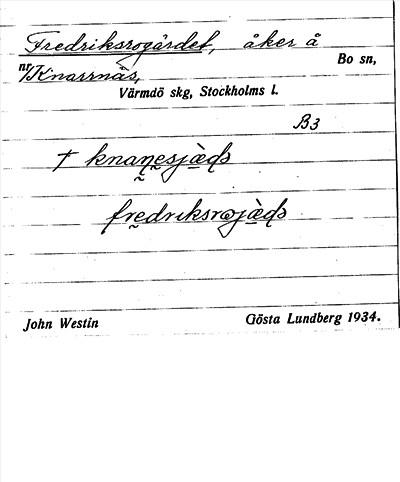 Fredriksrogärdet, åker å
nr/Knarrnäs,
Bo sn,
Värmdö skg, Stockholms l.
B3
† knaṇesjàḍs
fredriksrogjàḍs
John Westin
Gösta Lundberg 1934.